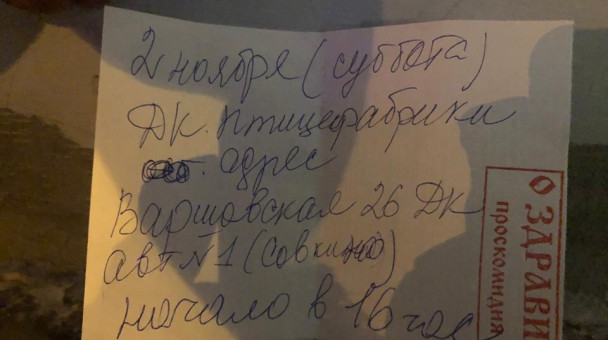 2 ноября (суббота)
ДК. птицефабрики
адрес
Варшовская 26 ДК
авт №1 (Совкино)
начало в 16 час
О ЗДРАВИ
проскомидия